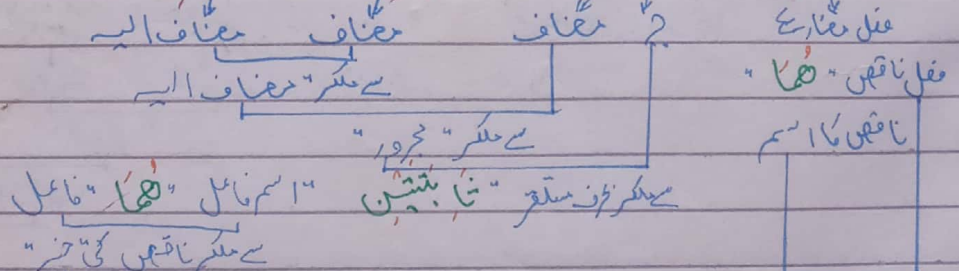 فعل مضارع جر مضاف مضاف مضاف الیہ
فعل ناقص "ھُمَا" سے ملکر "مضاف الیہ
ناقص کا اسم سے ملکر "مجرور"
سے ملکر ظرف مستقر "ثَابِتَیْنِ "اسم فاعل "ھُمَا" فاعل
سے ملکر ناقص کی "خبر"